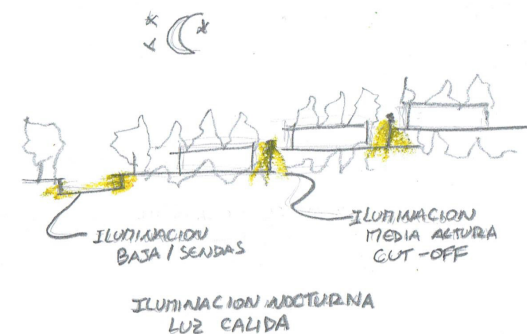 ILUMINACION
BAJA / SENDAS
ILUMINACION
MEDIA ALTURA
CUT-OFF
ILUMINACION NOCTURNA
LUZ CALIDA